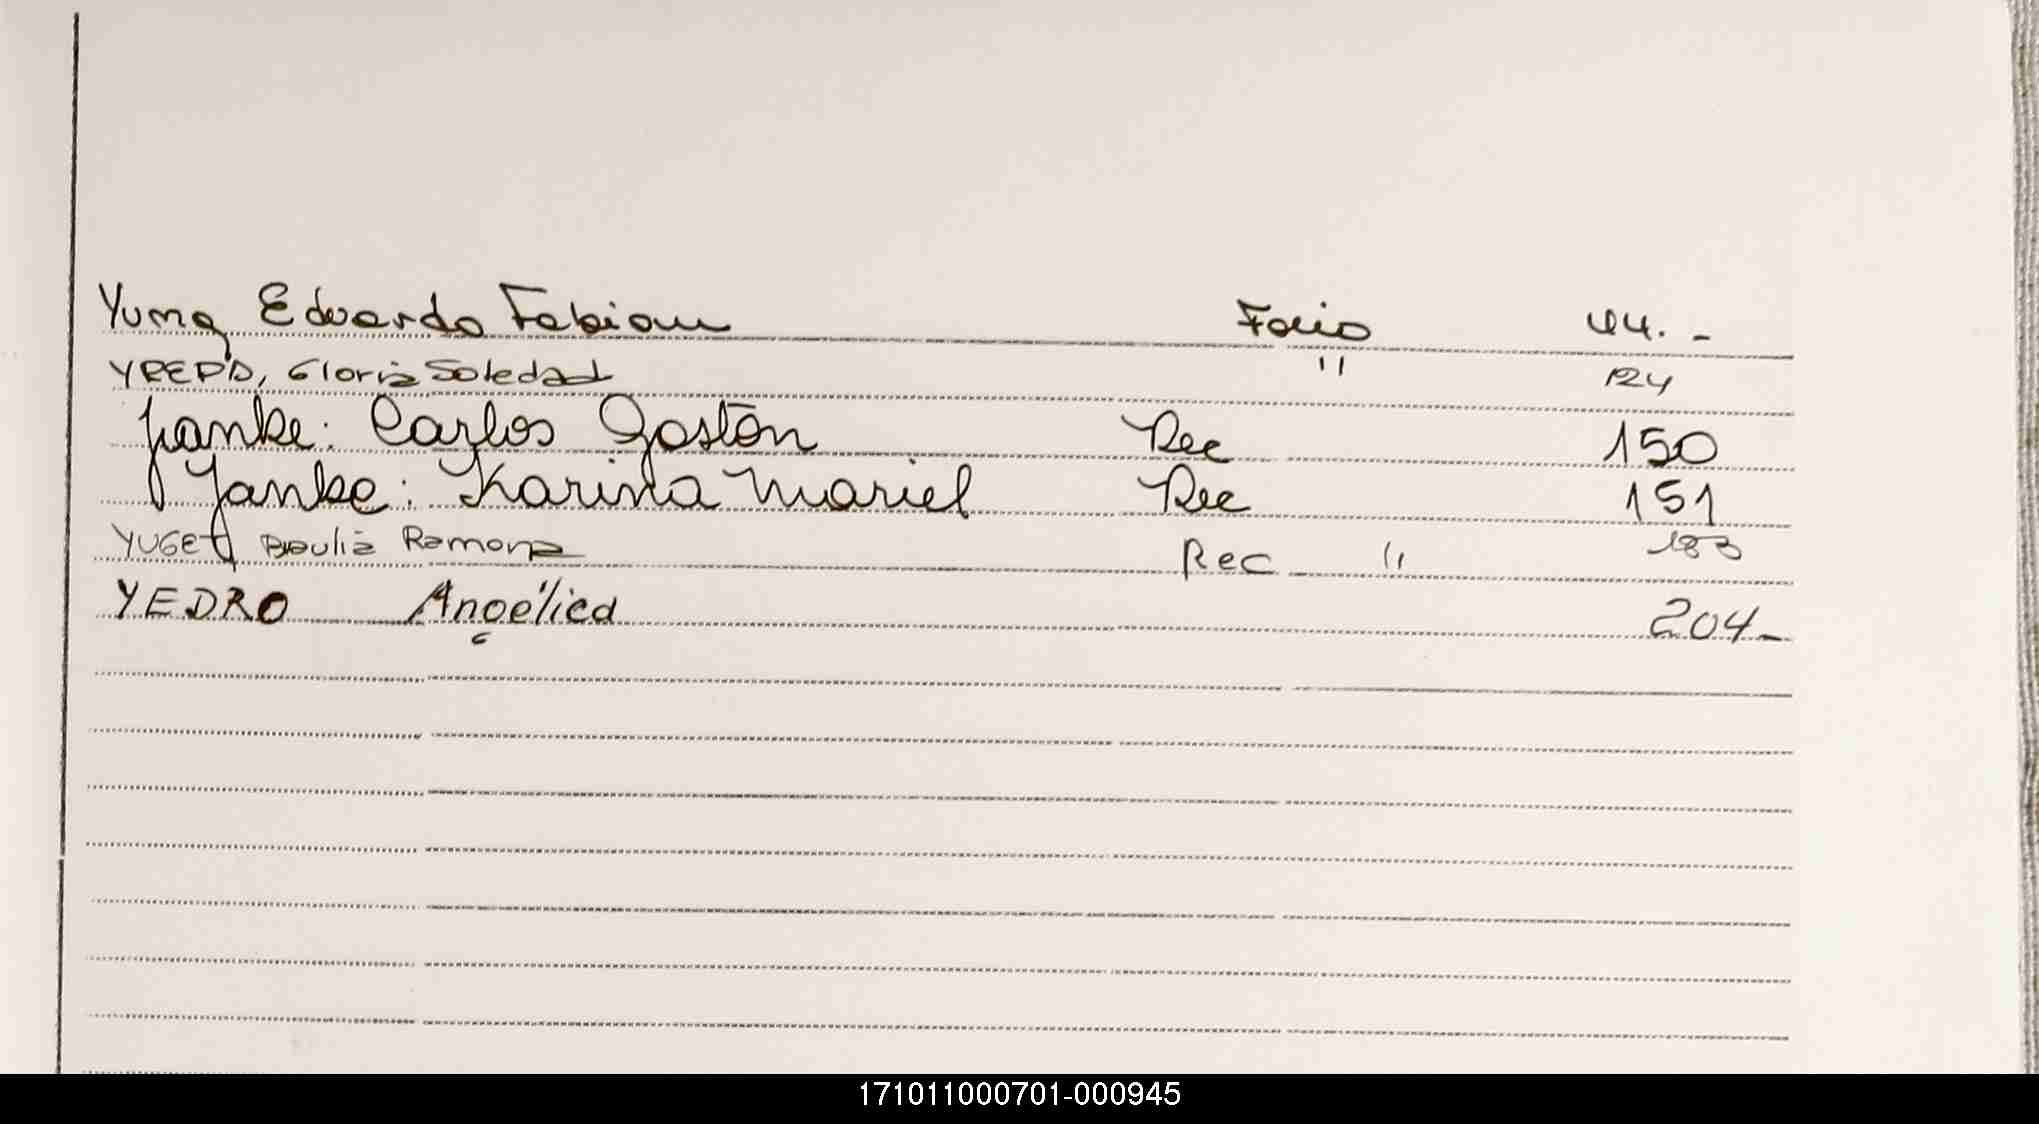 Yuma Eduardo Fabian Folio 44. -
Gloria Soledad " 124
Yanke: Carlos Gastón Rec 150
Yanke: Karina Mariel Rec 151
Ramona Rec " 183
YEDRO Angélica 204-
171011000701-000945